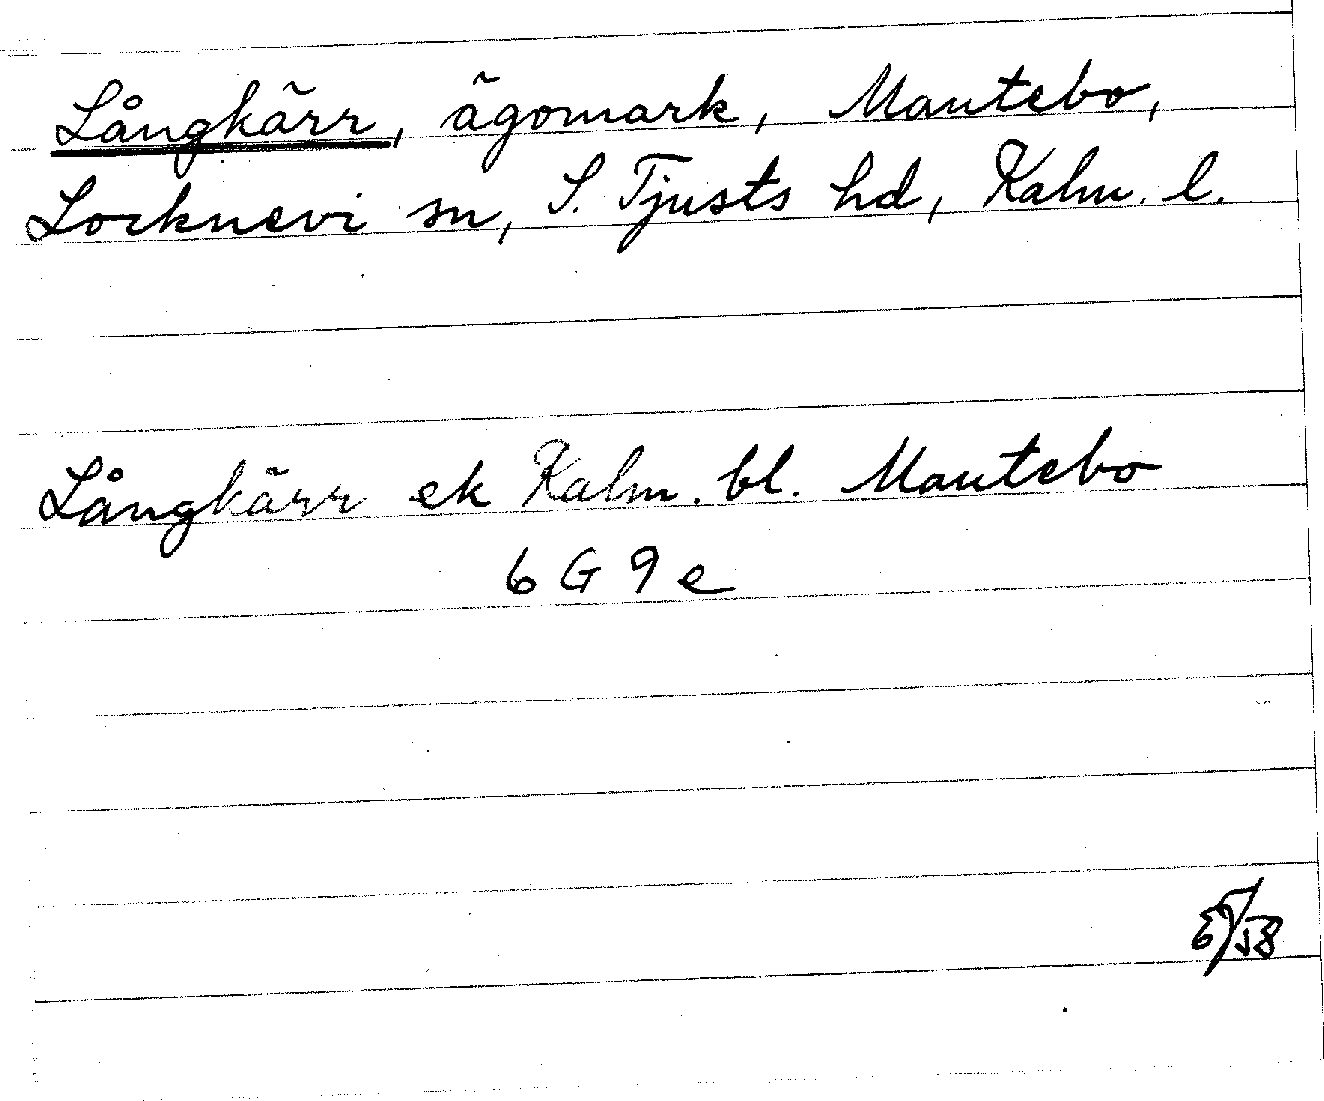 Långkärr, ägomark, Mantebo,
Locknevi sn, S. Tjusts hd, Kalm. l.
Långkärr ek Kalm. bl. Mantebo
6 G 9 e